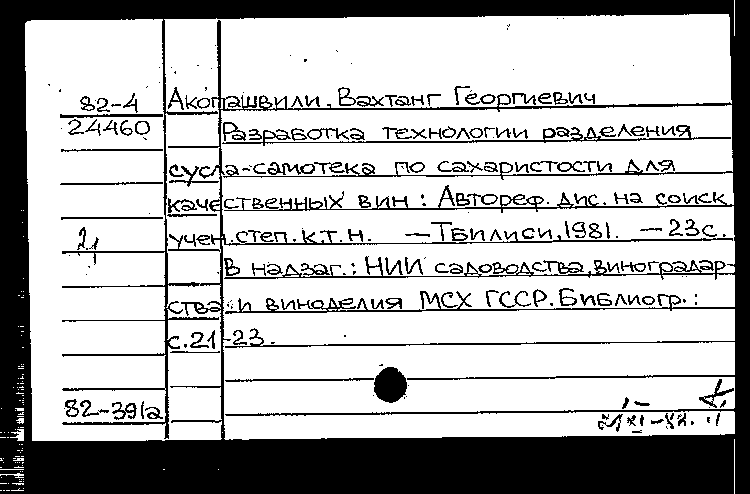 82-4 Акопашвили. Вахтанг Георгиевич
24460 Разработка технологии разделения
сусла-самотека по сахаристости для
качественных вин : Автореф. дис. на соиск.
учен.степ.к.т.н. — Тбилиси,1981. — 23с.
В надзаг.: НИИ садоводства,виноградар-
ства и виноделия МСХ ГССР. Библиогр.:
с.21-23.
82-391а